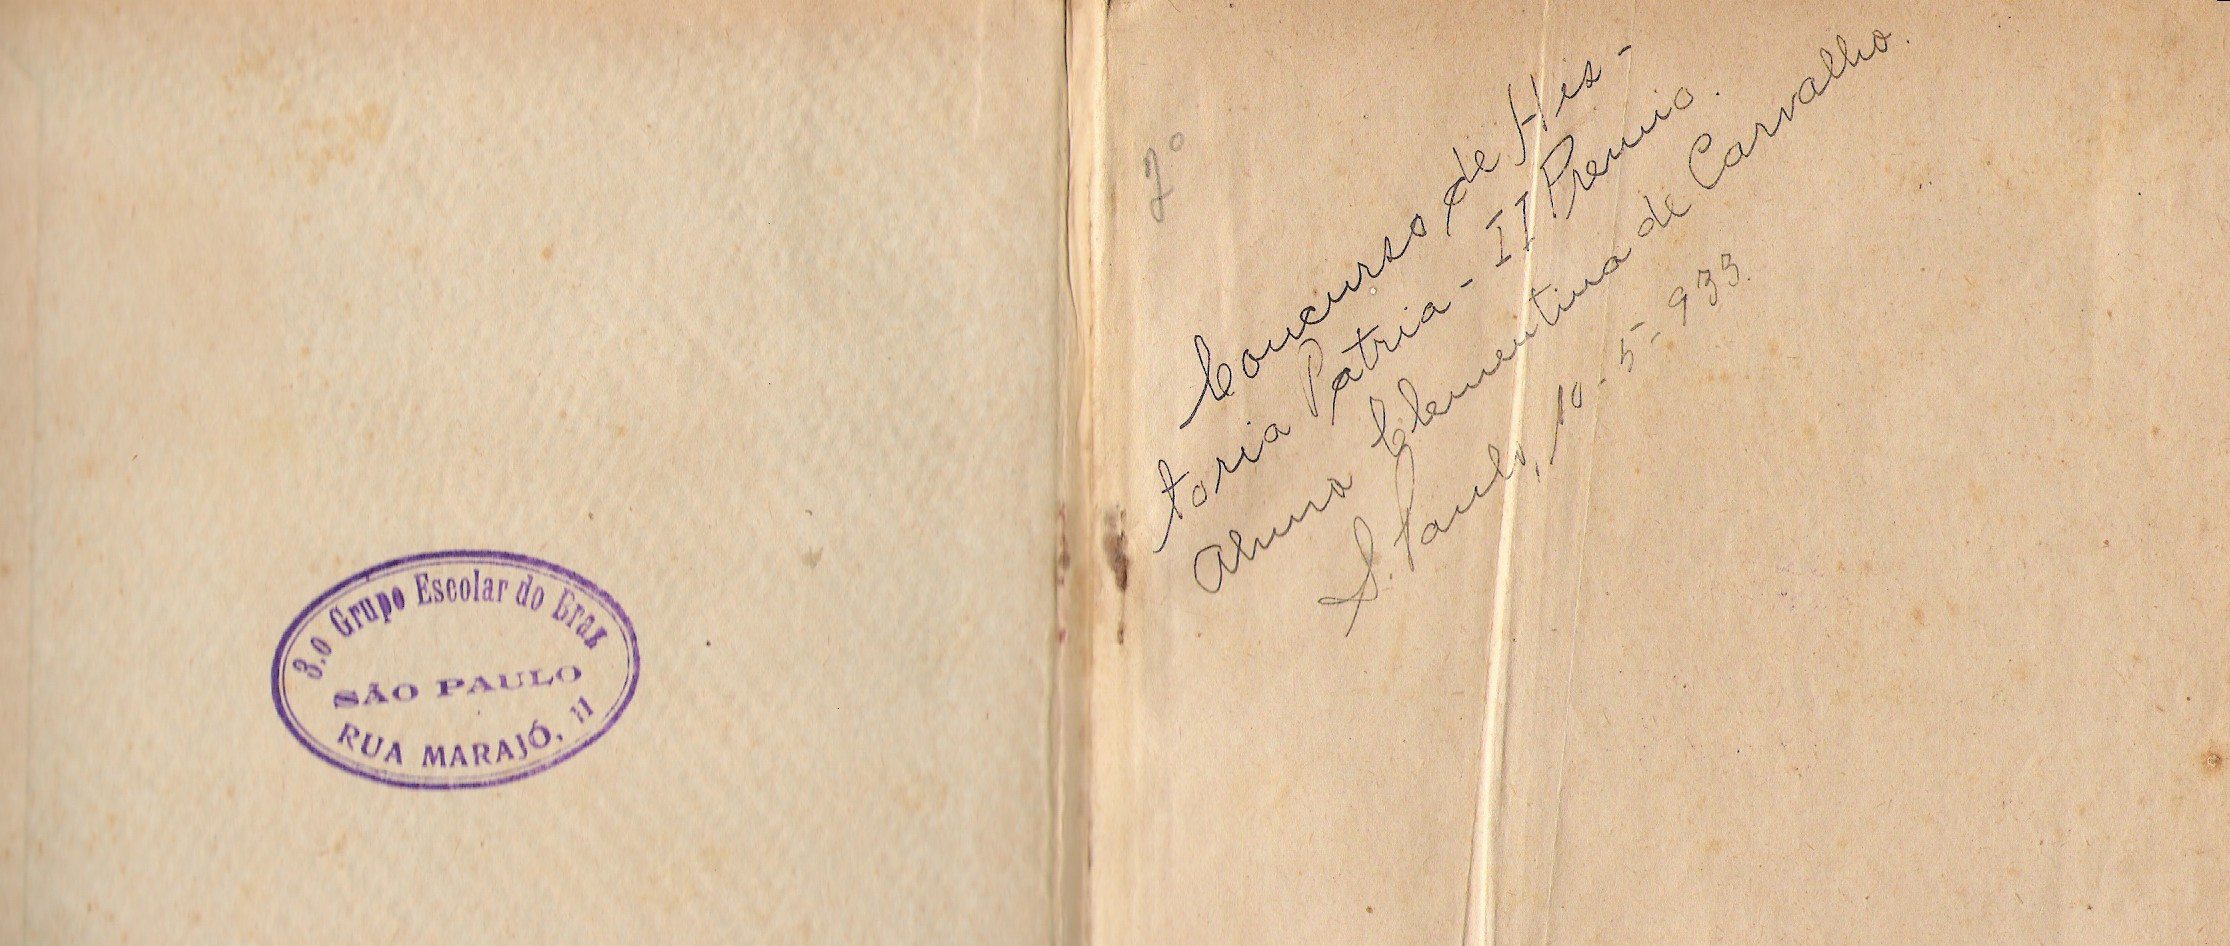 3.o Grupo Escolar do Braz
SÃO PAULO
RUA MARAJÓ, 11
2º
Concurso de His-
toria Patria - II Premio.
Aluna Clementina de Carvalho.
S. Paulo, 10-5-933.